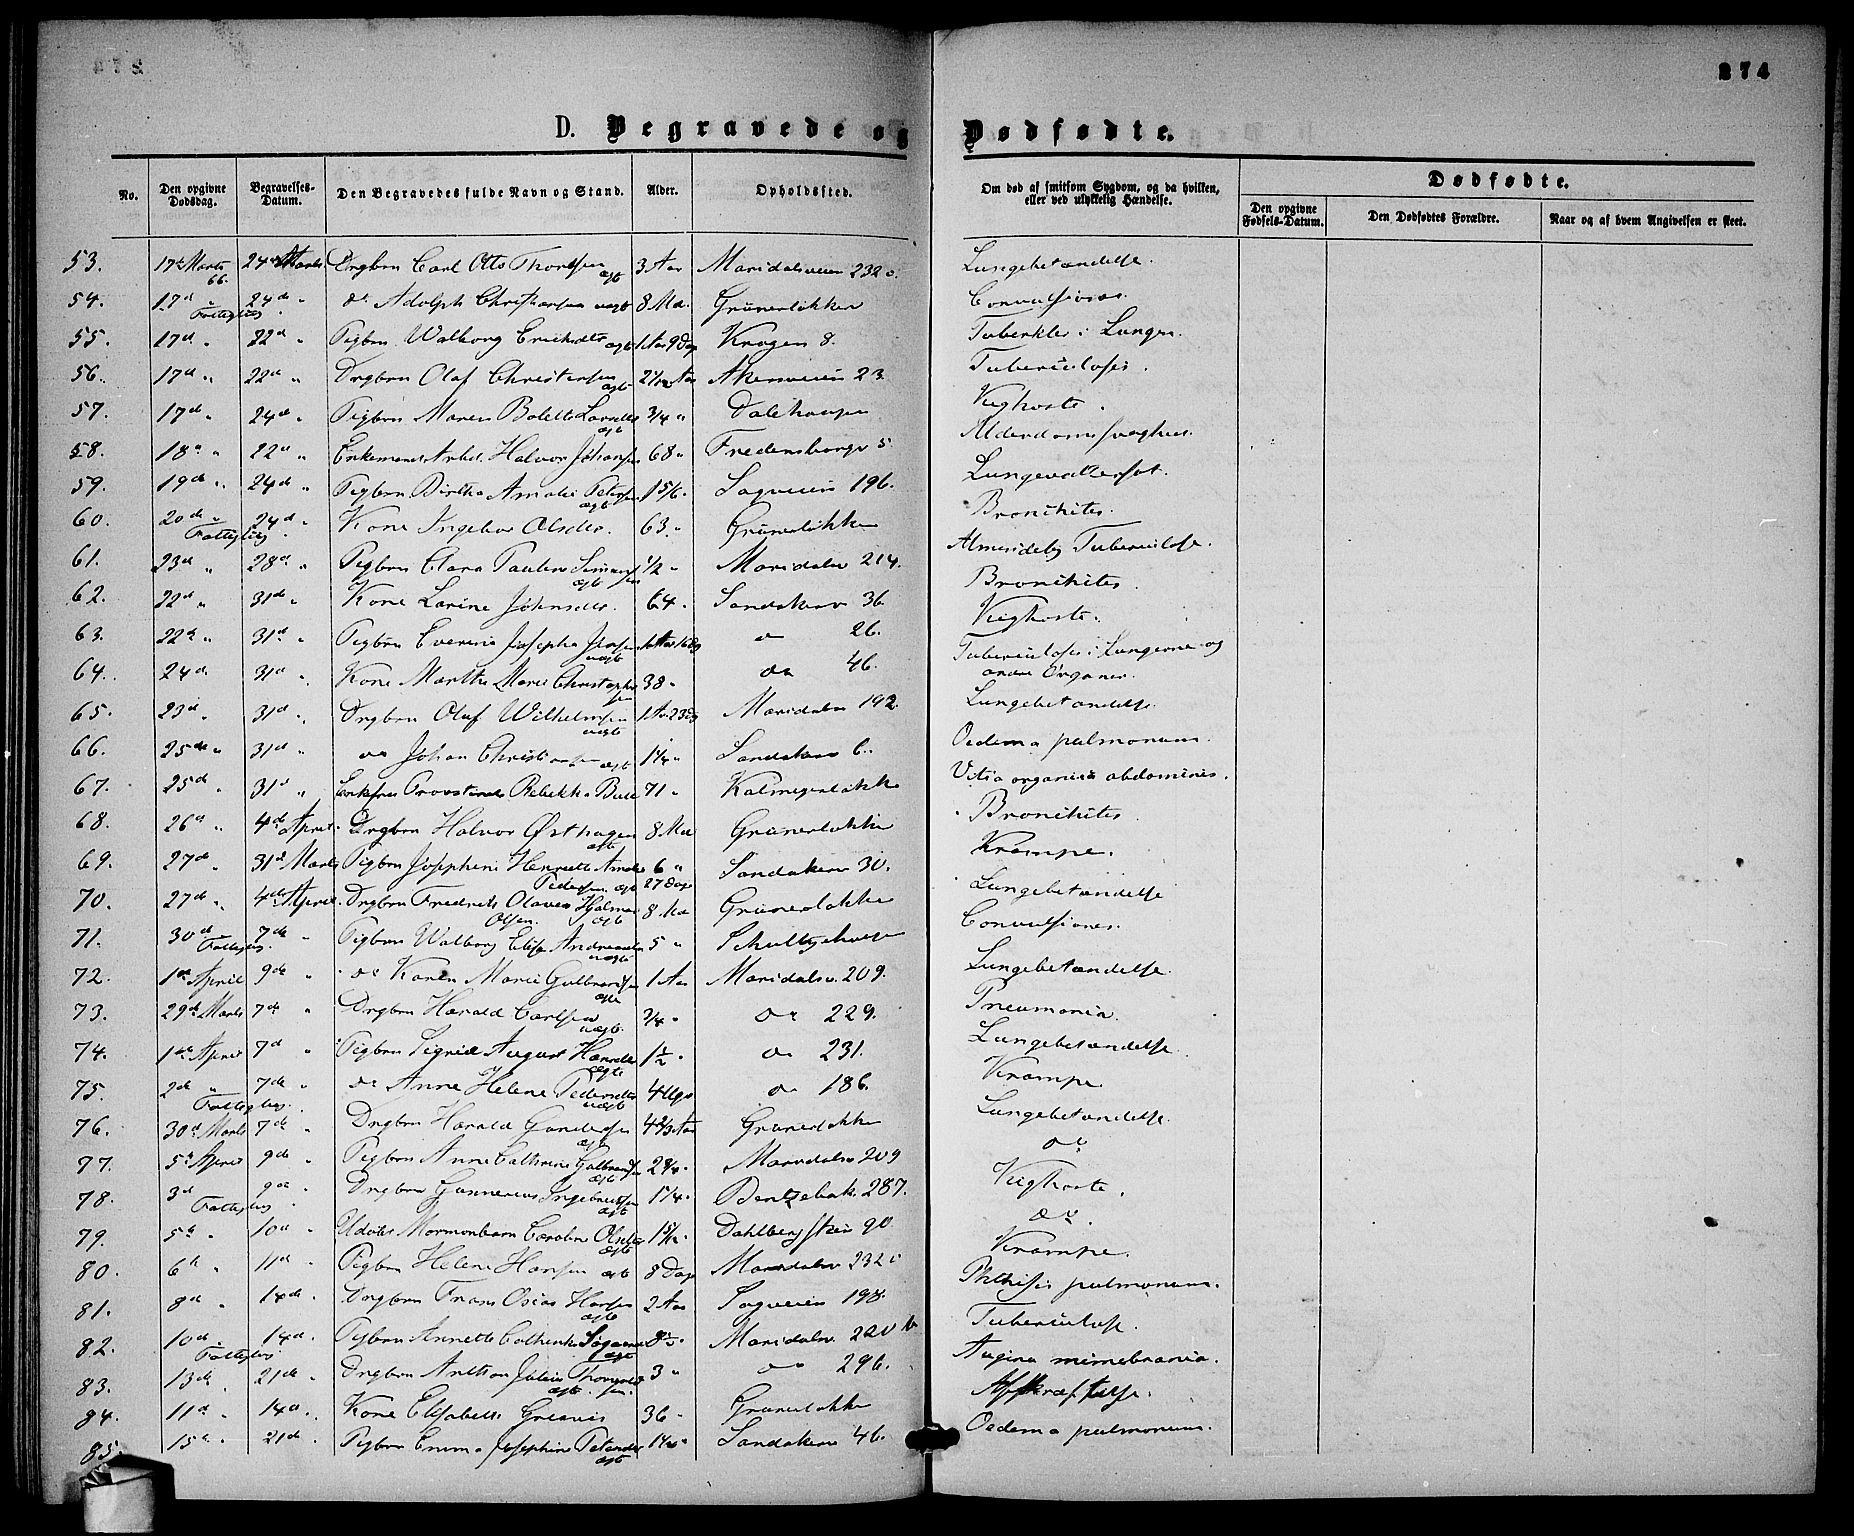 274
D. Begravede og Dødfødte.
No.
Den opgivne Dødsdag.
Begravelses-Datum.
Den Begravedes fulde Navn og Stand.
Alder.
Opholdssted.
Om død af smitsom Sygdom, og da hvilken, eller ved ulykkelig Hændelse.
Dødfødte.
Den opgivne Fødsels-Datum.
Den Dødfødtes Forældre.
Naar og af hvem Angivelsen er skeet.
53. 17de Marts 66. 24de Marts Drgbrn Carl Otto Thorsen ægt 3 Aar Maridalsveien 232 Lungebetændelse.
54. 17d " 24de " do Adolph Christiansen uægt 8 Md. Grünerløkken Convulsiones.
55. 17d " 22de " Pigbrn Walborg Ericksdtr ægt 1 Aar 9 Dag Krogen 8. Tuberkler i Lungen.
56. 17d " 22de " Drgbrn Olaf Christensen ægt Aar Akersveien 23. Tuberculosis.
57. 17d " 24de " Pigbrn Maren Bolette Larsdtr ægt 3/4 " Dalehausen Kighoste.
58. 18de " 22de " Enkemand Arbd. Halvor Johansen 68 " Fredensborgv 5 Alderdomssvaghed.
59. 19de " 24de " Pigbrn Birthe Amalie Petersen ægt 1 5/6 " Sagveien 196. Lungevattersot.
60. 20de " 24d " Kone Ingebor Olsdtr. 63 " Grünerløkken Bronchites.
61. 23de " 28de " Pigbrn Clara Pauline Simensen ægt 1/2 " Maridalsv 214. Almindelig Tuberculose.
62. 22de " 31de " Kone Larine Johnsdtr. 64 " Sandakerv 36 Bronchites
63. 22de " 31de " Pigbrn Everine Josepha Jensen uægt do 26. Kighoste.
64. 24de 31d " Kone Marthe Marie Christophersen 38 " do 46. Tuberculosis i Lungerne og andre Organer.
65. 23de " 31de " Drgbrn Olaf Wilhelmsen uægt 1 Aar 23 Dg Maridalsv 192. Lungebetændelse.
66. 25de " 31de " do Johan Christiansen ægt 1 1/4 " Sandakerv 6. Oedema pulmonum.
67. 25de " 31d " Enkefrue Provstinde Rebekka Bull 71 " Kalmeyerløkke Vitia organica abdominis.
68. 26de " 4de April Drgbrn Halvor Østhagen ægte 8 Md Grünerløkke Bronchites
69. 27de " 31d Marts Pigbrn Josephine Henriette Amalie Pedersen ægt 6 " 27 Dage Sandakerv 30. Krampe.
70. 27de " 4de April Drgbrn Fredrik Olaves Hjalmar Olsen ægt 8 Md Grünerløkke Lungebetændelse
71. 30d " 7de " Pigbrn Walborg Elise Andreasdtr uægt 5 " Schultzehaugen Convulsiones.
72. 1de April 9de " do Karen Marie Gulbrandsen ægte 1 Aar Maridalsv. 209. Lungebetændelse.
73. 29de Marts 7de " Drgbrn Harald Carlsen uægt. 3/4 " do 229. Pneumonia.
74. 1de April 7d " Pigbrn Sigrid August Hansdtr ægte 1 1/2 " do 231. Lungebetændelse
75. 2de " 7de " do Anne Helene Pedersdtr uægt 4 Ugr do 186. Krampe.
76. 30d Marts 7de " Drgbrn Harald Gundersen ægt 4 2/3 Aar Grünerløkke Lungebetændelse.
77. 5te April 9de " Pigbrn Anne Cathrine Gulbrandsen ægt 2 3/4 " Maridalsv 209 do
78. 3d 9de Drgbrn Gunnerius Ingebretsen ægt 1 1/4 " Bentzebak. 287. Kighoste.
79. 5te 10de " Udøbt Mormonbarn Caroline Olsdtr ægte Dahlbergstien 90. do
80. 6te " 11de " Pigbrn Helene Hansen ægt 8 Dage Maridalsv 232 Krampe.
81. 8de " 14de " Drgbrn Frans Oscar Hansen ægte 2 Aar Sagveien 198. Phthisis pulmonum.
82. 10d. 14de " Pigbrn Annette Cathinka ægt Maridalsv. 220 b Tuberculose.
83. 13de " 21de " Drgbrn Anthon Julius Thorvaldsen ægt. 3 " do 296. Angina membrania.
84. 11de " 14de " Kone Elisabeth Gresvig 36 " Grünerløkke Affkræftelse.
85. 15de " 21de " Pigbrn Emma Josephine Petersdtr ægt Sandakerv 46. Oedema pulmonum.